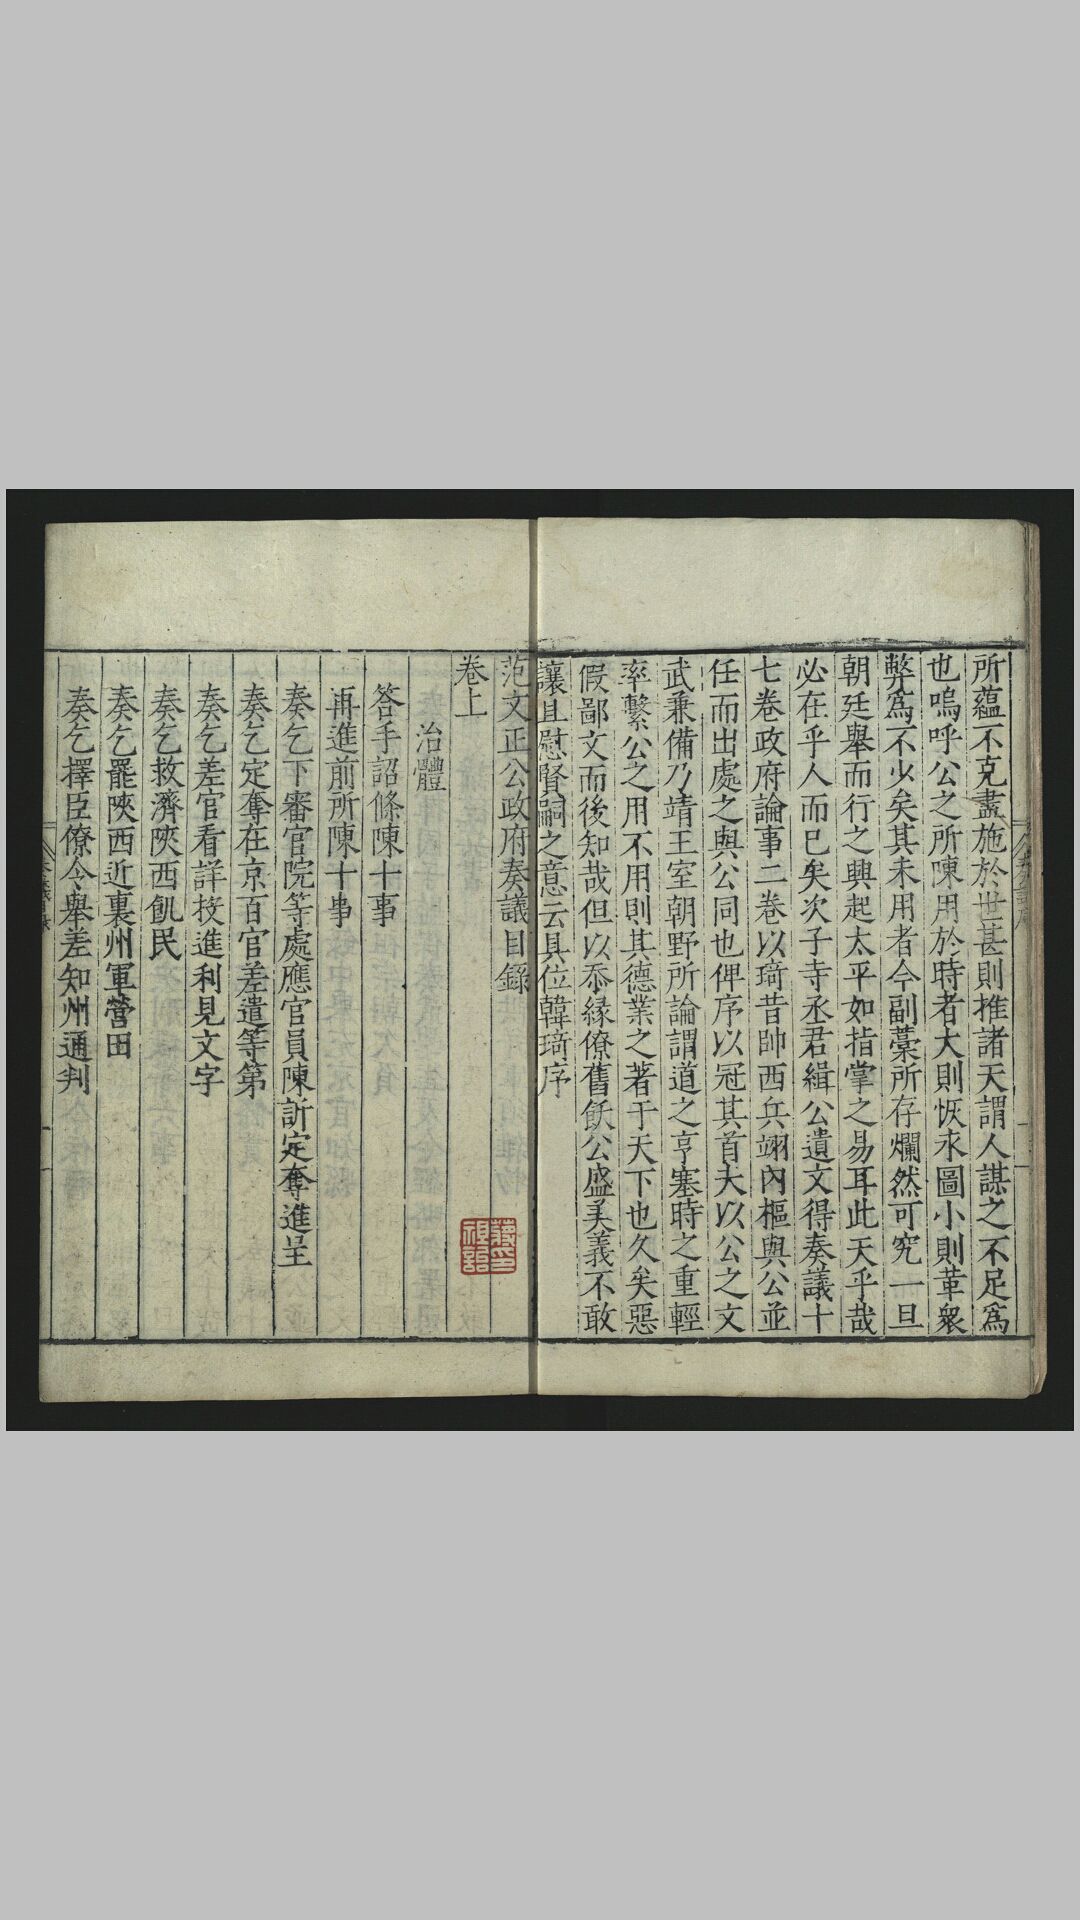 所蘊不克盡施於世甚則推諸天謂人謀之不足爲
也嗚呼公之所陳用於時者大則恢永圖小則革衆
弊爲不少矣其未用者今副藁所存爛然可究一旦
朝廷舉而行之興起太平如指掌之易耳此天乎哉
必在乎人而已矣次子寺丞君緝公遺文得奏議十
七卷政府論事二卷以琦昔帥西兵翊內樞與公並
任而出處之與公同也俾序以冠其首夫以公之文
武兼備乃靖王室朝野所論謂道之亨塞時之重輕
率繫公之用不用則其德業之著于天下也久矣惡
假鄙文而後知哉但以忝縁僚舊飫公盛美義不敢
讓且慰賢嗣之意云具位韓琦序
范文正公政府奏議目錄
卷上
治體
答手詔條陳十事
再進前所陳十事
奏乞下審官院等處應官員陳訴定奪進呈
奏乞定奪在京百官差遣等第
奏乞差官看詳投進利見文字
奏乞救濟陝西飢民
奏乞罷陝西近裏州軍營田
奏乞擇臣僚令舉差知州通判